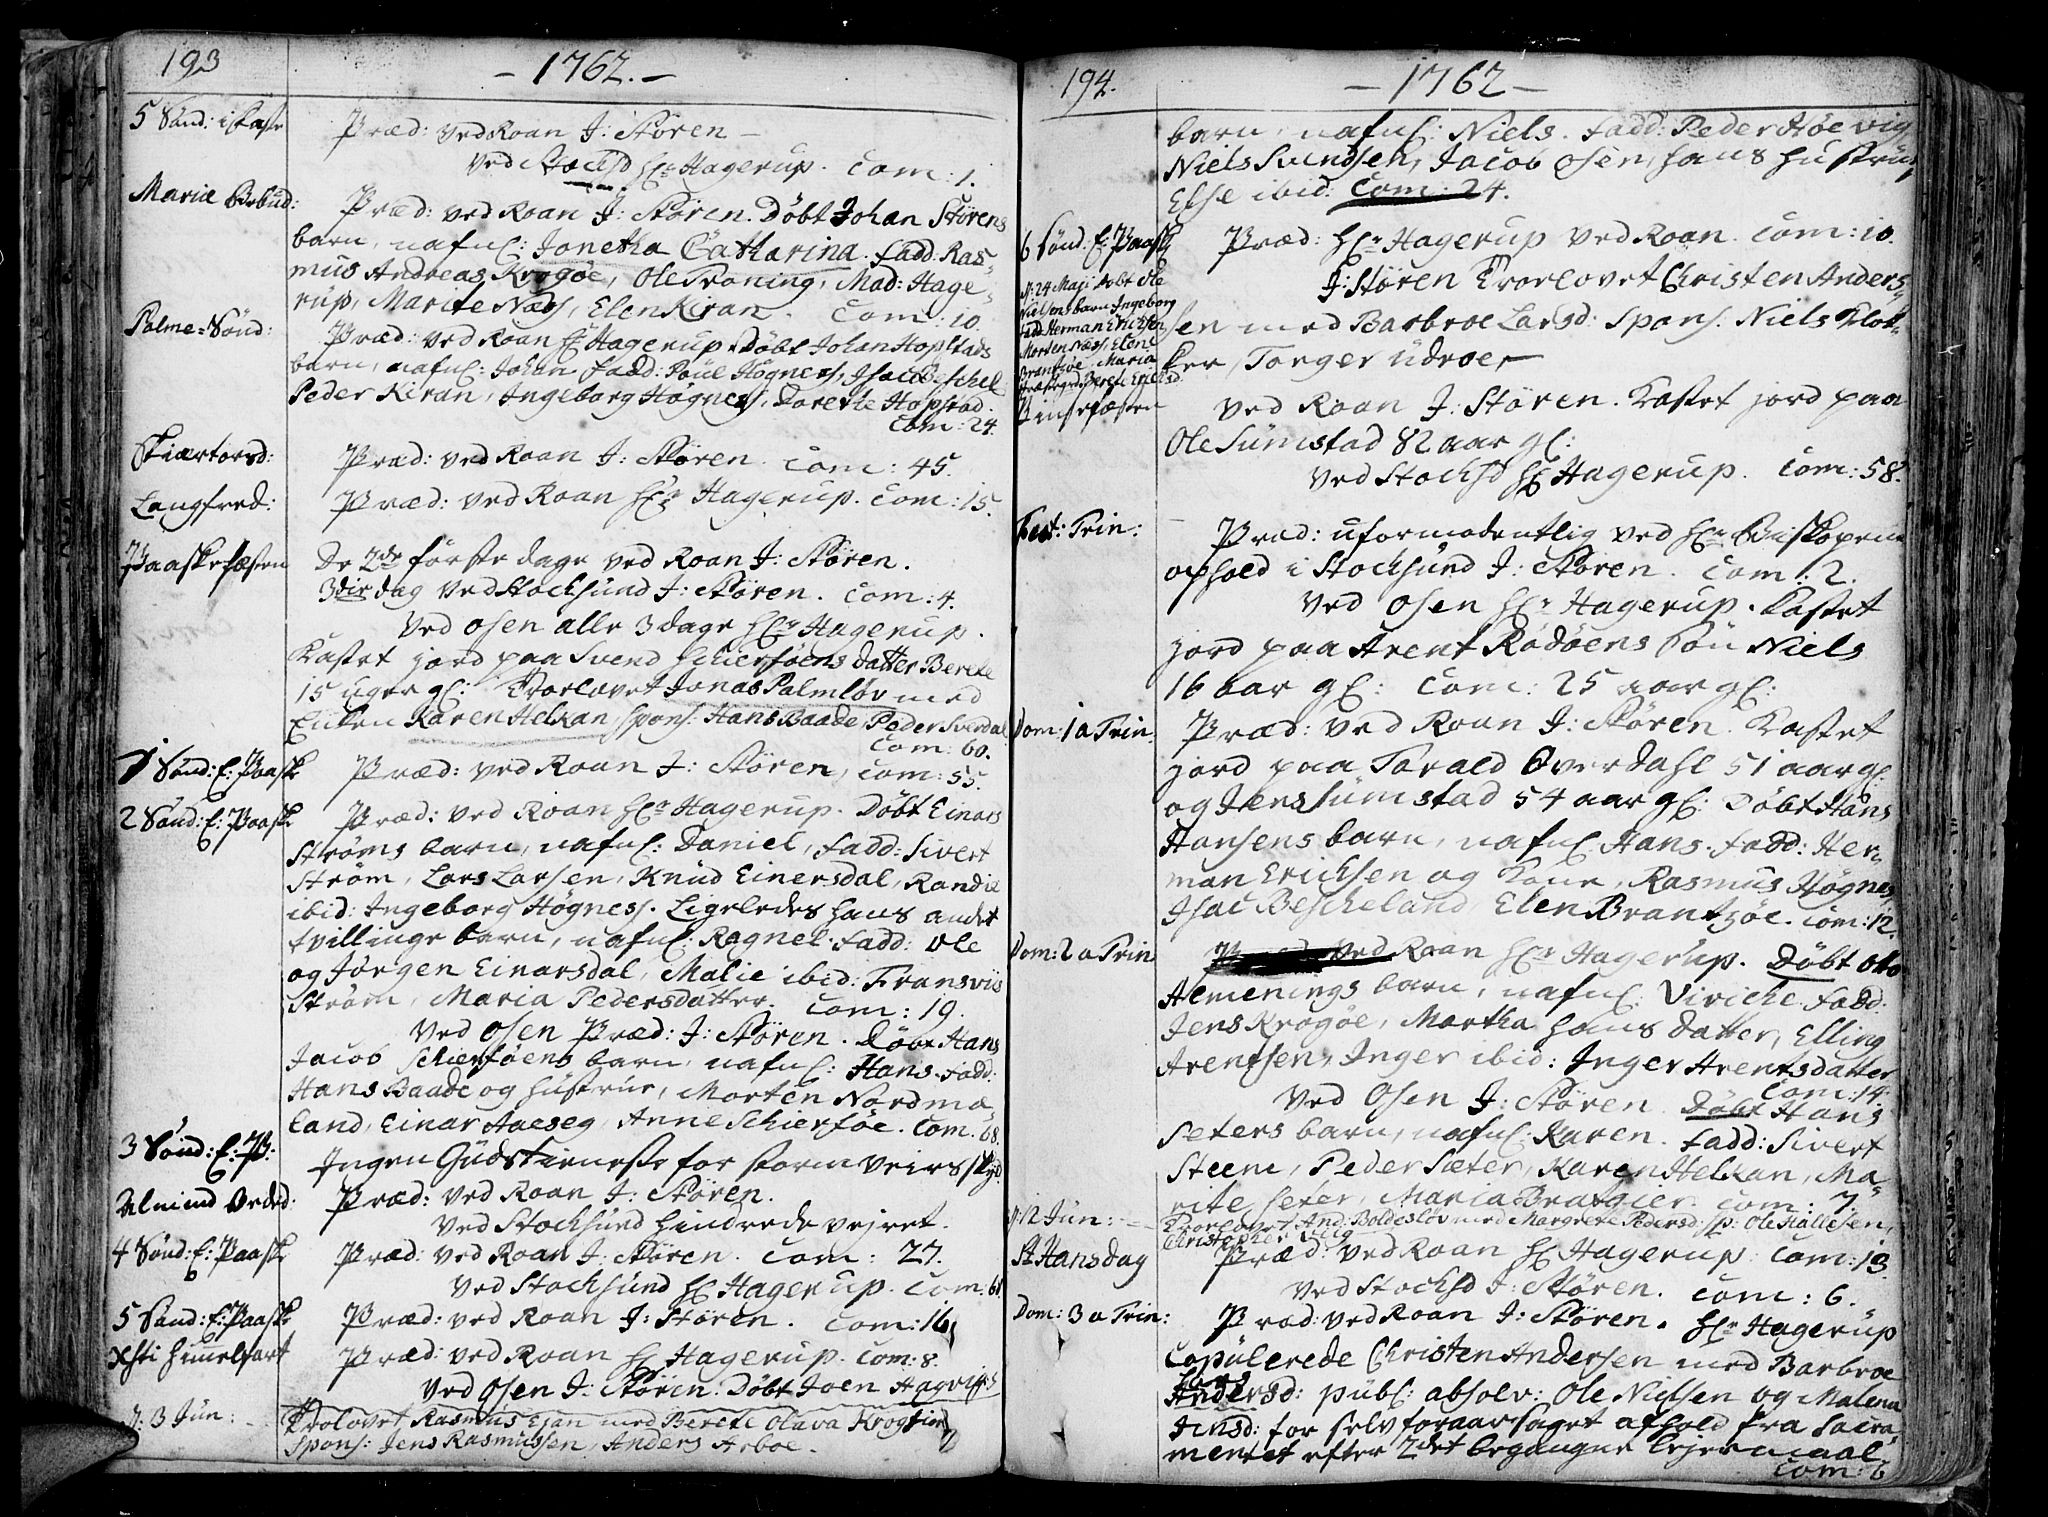 193
- 1762. -
5 Sønd: i Faste
Præd: ved Roan J: Støren -
ved Stocksd Hr Hagerup. Com: 1.
Mariæ Bebud:
Præd: ved Roan J: Støren. Døbt Johan Størens
barn, nafnl: Jonetha Catharina. Fadd: Ras-
mus Andreas Krogøe, Ole Troning, Mad: Hage-
rup, Marite Næss, Elen Kiran. Com: 10.
Palme-Sønd:
Præd: ved Roan Hr Hagerup. Døbt Johan Hopstads
barn, nafnl: Johan Fadd: Poul Høgness, Isac Beschel
Peder Kiran, Ingeborg Høgness, Dorette Hopstad.
Com: 24.
Skiærtorsd:
Præd: ved Roan J: Støren. Com: 45.
Langfred:
Præd: ved Roan Hr: Hagerup. Com: 15.
Paaskefæsten
De 2de første dage ved Roan J: Støren.
3die dag ved Stocksund J: Støren. Com: 4.
Ved Osen alle 3 dage Hr: Hagerup.
Kastet jord paa Svend Schierføens datter Berete
15 uger gl: Trorlovet Jonas Palmløv med
Enken Karen Helkan, spons: Hans Baade, Peder Sverdal
Com: 60.
1 Sønd: E: Paaske
Præd: ved Roan J: Støren, Com: 55.
2 Sønd: E: Paaske
Præd: ved Roan Hr: Hagerup. Døbt Einars
Strøms barn, nafnl: Daniel, Fadd: Sivert
Strøm, Lars Larsen, Knud Einersdal, Randie
ibid: Ingeborg Høgness. Ligeledes hans andet
tvillinge barn, nafnl: Ragnel. Fadd: Ole
og Jørgen Einarsdal, Malie ibid: Fransviis
Strøm, Maria Pedersdatter. Com: 19.
Ved Osen Præd: J: Støren. Døbt Hans
Jacob Schierføens barn, nafnl: Hans. Fadd:
Hans Baade og Hustrue, Morten Nordmæ-
land, Einar Aaeseg, Anne Schierføe. Com. 68.
3 Sønd: E: P:
Ingen Gudstieneste for storm veirs skyld.
Almind Beded:
Præd: ved Roan J: Støren.
Ved Stocksund hindrede vejret.
4 Sønd: E: Paaske
Præd: ved Roan J: Støren. Com: 27.
Ved Stocksund Hr Hagerup. Com: 61.
5 Sønd: E: Paaske
Præd: ved Roan J: Støren. Com: 16
Xsti Himelfart
Præd: ved Roan Hr Hagerup. Com: 8.
Ved Osen J: Støren. Døbt Joen Hagviigs
d: 3 Jun:
Trolovet Rasmus Esan med Berete Olava Krogstien
Spons: Jens Rasmussen, Anders Arboe.
194.
- 1762 -
barn, nafnl: Niels. Fadd: Peder Høevig
Niels Svendsen, Jacob Osen, hans Hustrue,
Else ibid: Com: 24.
6 Sønd: E: Paask
Præd: Hr: Hagerup ved Roan. Com: 10.
J: Støren Trorlovet Christen Anders-
sen med Barbroe Larsd: Spons: Niels Klok-
ker, Torger Udroe,
d: 24 Maji døbt Ole
Nielsens barn Ingeborg
Fadd Herman Erichsen
Morten Næss, Elen
Brantzøe, Maria
Berete Ericksd.
Pinsefæsten
ved Roan J: Støren. Kastet jord paa
Ole Sumstad 82 aar gl:
ved Stocksd Hr Hagerup. Com: 58.
Fest: Trin:
Præd: uformodentlig ved Hr: Biskopens
ophold i Stocksund J: Støren. Com: 2.
Ved Osen Hr: Hagerup. Kastet
jord paa Arent Rødøens Søn Niels
16 aar gl: Com: 25 aar gl:
Dom: 1 a Trin:
Præd: ved Roan J: Støren. Kastet
jord paa Tarald Overdahl 51 aar gl:
og Jens Sumstad 54 aar gl: Døbt Hans
Hansens barn, nafnl Hans. Fadd: Her-
man Erichsen og Kone, Rasmus Høgnes,
Isac Bescheland, Elen Brantzøe. Com: 12.
Dom: 2 a Trin
ved Roan Hr: Hagerup. Døbt Oto
Almenings barn, nafnl: Viriche. Fadd:
Jens Krogøe, Martha hans datter, Elling
Arentsen, Inger ibid: Inger Arentsdatter
Com: 14.
Ved Osen J: Støren. Døbt Hans
Seters barn, nafnl: Karen. Fadd: Sivert
Steene, Peder Sæter, Karen Helkan, Ma-
rite Seter, Maria Bratgier. Com: 7.
d: 12 Jun:
Trorlovet And: Boldesløv med Margrete Pedersd: sp: Ole Hallesen,
Christopher
St Hansdag
Præd: ved Roan Hr Hagerup. Com: 13.
Ved Stocksd J: Støren. Com: 6.
Dom: 3 a Trin:
Præd: ved Roan J: Støren. Hr: Hagerup
Copulerede Christen Andersen med Barbroe
Lars
Andersd: publ: absolv: Ole Nielsen og Malena
Jensd: for selv foraarsaget afhold fra Sacra-
mentet efter 2det begangne lejermaal
Com: 6